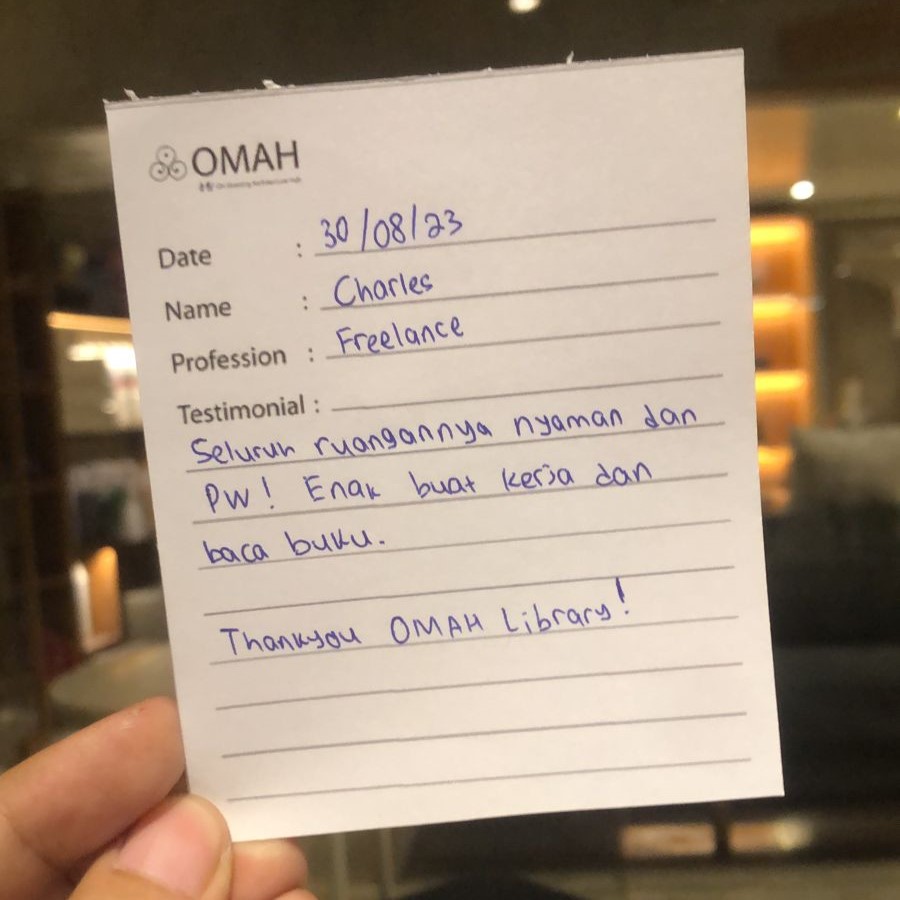 OMAH
Date : 30/08/23
Name : Charles
Profession : Freelance
Testimonial :
Seluruh ruangannya nyaman dan
PW! Enak buat kerja dan
baca buku.
Thankyou OMAH Library!